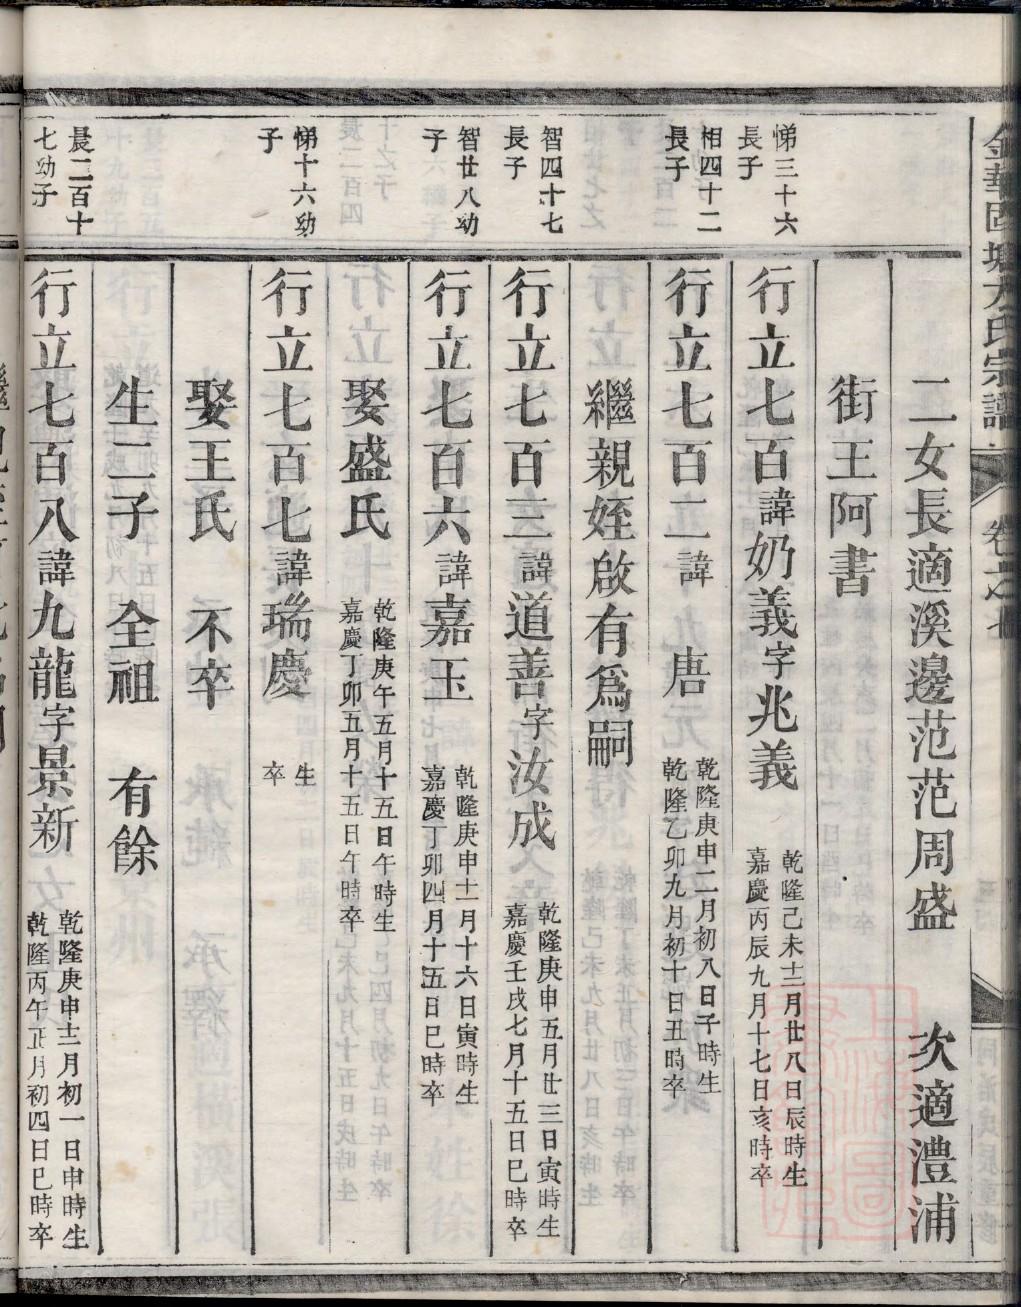 二女長適溪邊范范周盛　次適澧浦
街王阿書
悌三十六
長子
行立七百諱奶義字兆義
乾隆己未十二月廿八日辰時生
嘉慶丙辰九月十七日亥時卒
相四十二
長子
行立七百二諱　唐
乾隆庚申二月初八日子時生
乾隆乙卯九月初十日丑時卒
繼親姪啟有為嗣
智四十七
長子
行立七百三諱道善字汝成
乾隆庚申五月廿三日寅時生
嘉慶壬戌七月十五日巳時卒
智廿八幼
子
行立七百六諱嘉玉
乾隆庚申十一月十六日寅時生
嘉慶丁卯四月十五日巳時卒
娶盛氏
乾隆庚午五月十五日午時生
嘉慶丁卯五月十五日午時卒
悌十六幼
子
行立七百七諱瑞慶
生
卒
娶王氏　不卒
生二子　全祖　有餘
晨二百十
七幼子
行立七百八諱九龍字景新
乾隆庚申十二月初一日申時生
乾隆丙午正月初四日巳時卒